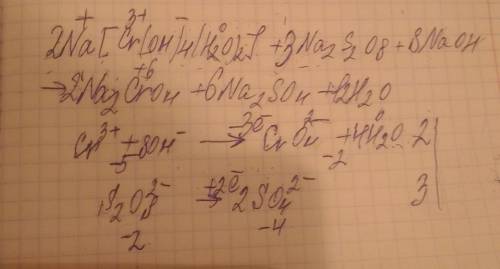 2Na[Cr(OH)4(H2O)2] + 3Na2S2O8 + 8NaOH
→ 2Na2CrO4 + 6Na2SO4 + 12H2O
Cr³⁺ + 8OH⁻ -3e→ CrO4²⁻ + 4H2O 2
-5 -2
S2O8²⁻ +2e→ 2SO4²⁻ 3
-2 -4